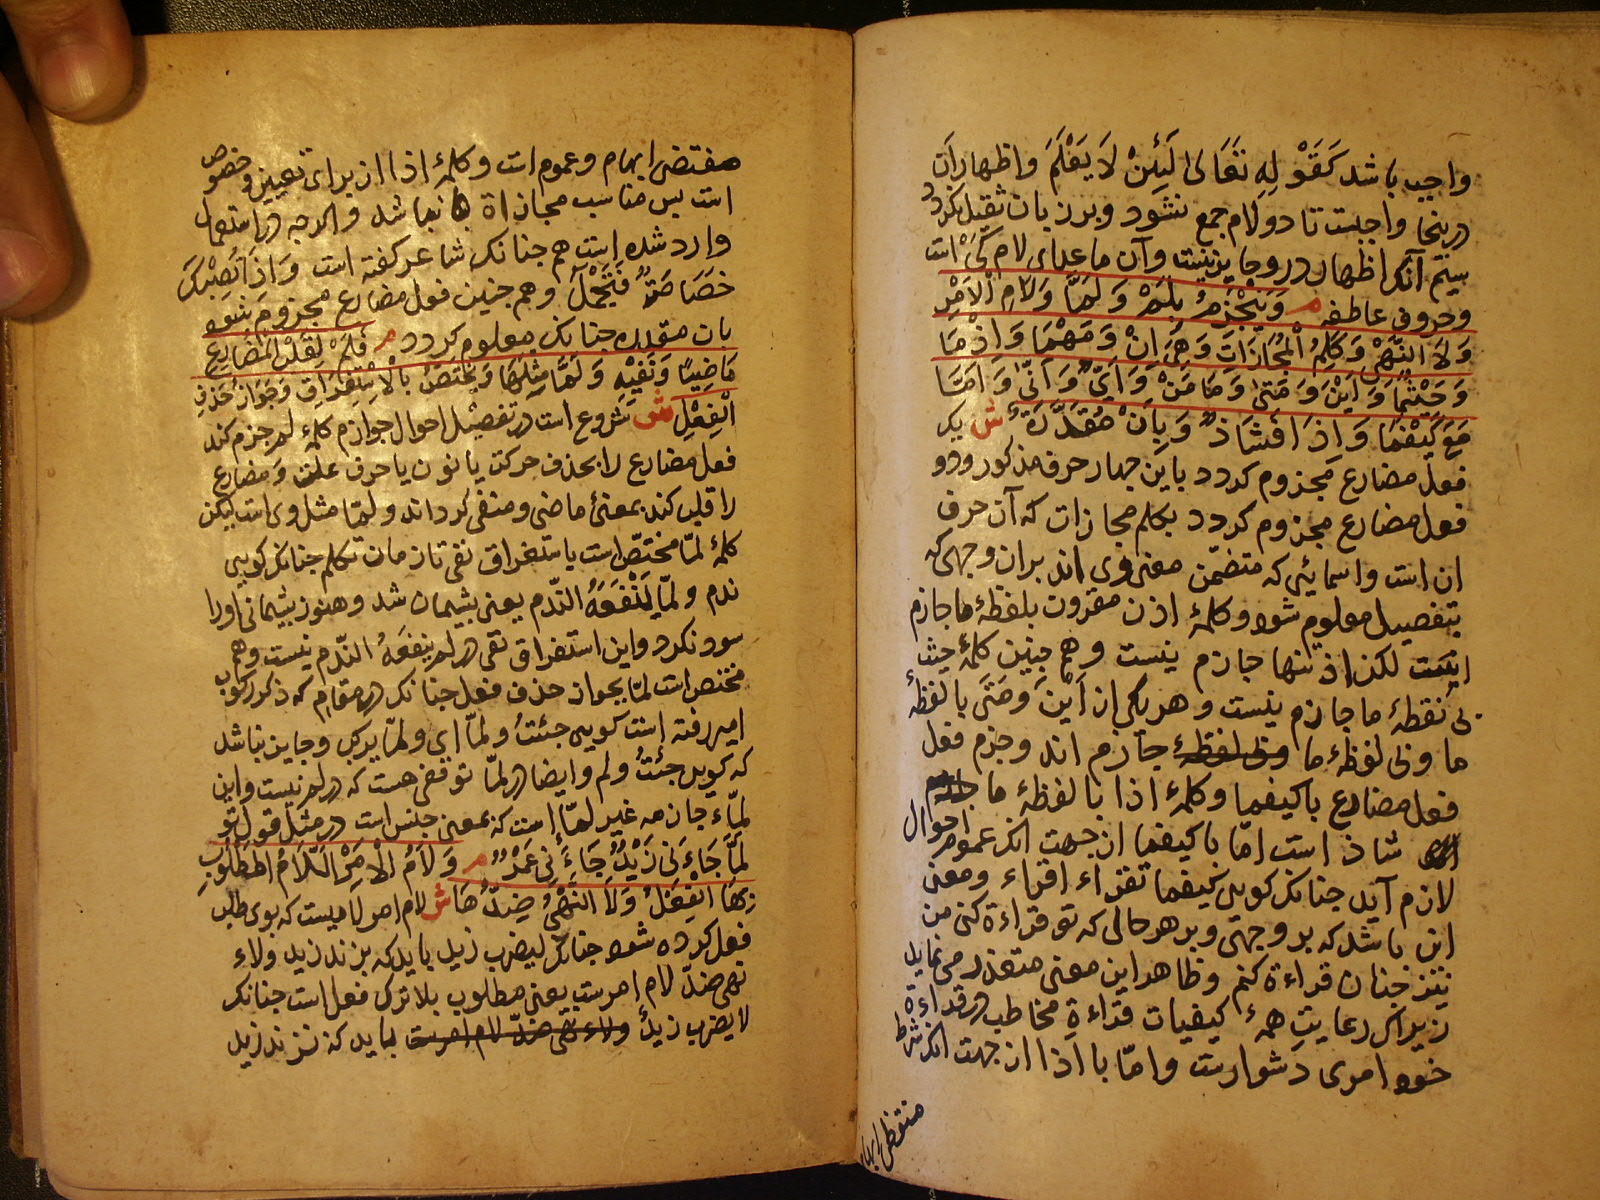 واجب باشد كَقَوْلِهِ تَعَالىٰ لَئِنْ لَا يَعْلَمَ واظهار آن
در ينجا واجبست تا دو لام جمع نشود وبر زبان ثقيل نكردد
سيم آنكه اظهار در وجايز نيست وآن ماعداى لام كَىْ است
وحروف عاطفه م وَيَنْجَزِمُ بِلَمْ وَلَمَّا وَلَامِ الْاَمْرِ
وَلَاءِ النَّهْىِ وَكَلِمِ الْمُجَازَاتِ وَهِىَ اِنْ وَمَهْمَا وَاِذْ مَا
وَحَيْثُمَا وَاَيْنَ وَمَتىٰ وَمَا وَمَنْ وَاَىٌّ وَاَنّىٰ وَاَمَّا
مَعَ كَيْفَمَا وَاِذَا فَشَاذٌ وَبِاَنْ مُقَدَّرَةً ش يك
فعل مضارع مجزوم كردد باين چهار حرف مذكور ودو
فعل مضارع مجزوم كردد بكلم مجازات كه آن حرف
ان است واسمايى كه متضمّن معنى وى اند بران وجهى كه
بتفصيل معلوم شود وكلمۀ اذ مقرون بلفظۀ ما جازم
است لكن اذ تنها جازم نيست وهم چنين كلمۀ حيث
بى لفظۀ ما جازم نيست وهر يكى از اَيْنَ وَمَتَى با لفظۀ
ما وبى لفظۀ ما جازم اند وجزم فعل
فعل مضارع با كيفما وكلمۀ اذا با لفظۀ ما
شاذ است امّا با كيفما از جهت انكه عموم احوال
لازم آيد چنانكه كويى كيفما تقراء اقراء ومعنى
اين باشد كه بر وجهى وبر هر حالى كه تو قراءة كنى من
نيز چنان قراءة كنم وظاهر اين معنى متعذر مى نمايد
زيرا كه رعايت همۀ كيفيات قراءة مخاطب در قراءة
خود امرى دشوارست وامّا با اذا از جهت انكه شرط
مقتضى ابهام
مقتضى ابهام وعموم است وكلمۀ اذا از براى تعيين وخصوص
است پس مناسب مجازاة نباشد والا چه در استعمال
وارد شده است هم چنانكه شاعر كفته است وَاِذَا تُصِبْكَ
خَصَاصَةٌ فَتَجَمَّل وهم چنين فعل مضارع مجزوم شود
بان مقدره چنانكه معلوم كردد م فَلَمْ لِقَلْبِ الْمُضَارِعِ
مَاضِيًا وَنَفْيِهِ وَلَمَّا مِثْلُهَا وَتَخْتَصُّ بِالْاِسْتِغْرَاقِ وَجَوَازِ حَذْفِ
الْفِعْلِ ش شروع است در تفصيل احوال جوازم كلمۀ لم جزم كند
فعل مضارع را بحذف حركت يا نون يا حرف علت ومضارع
را قلب كند بمعنئ ماضى ومنفى كرداند ولمّا مثل وى است ليكن
كلمۀ لمّا مختصّ است باستغراق نفى تا زمان تكلم چنانكه كويى
ندم ولمّا يَنْفَعَهُ النّدم يعنى پشيمان شد وهنوز پشيمانى او را
سود نكرد واين استغراق نفى در لم ينفعهُ النّدم نيست وهم
مختص است لمّا بجواز حذف فعل چنانكه در مقام كه ذكر ركوب
امير رفته است كويى جئتُ ولمّا اى ولمّا يركب وجايز نباشد
كه كويى جئتُ ولم وايضا در لمّا توقعى هست كه در لم نيست واين
لمّاء جازمه غير لمّا است كه بمعنى حين است در مثل قول تو
لَمَّا جَاءَنِى زَيْدٌ جَاءَنِى عَمْرٌو م وَلَامُ الْاَمْرِ اللَّامُ الْمَطْلُوبِ
بِهَا الْفِعْلُ وَلَا النَّهْىُ ضِدُّهَا ش لام امر لاميست كه بوى طلب
فعل كرده شود چنانكه ليضرب زيد بايد كه بزند زيد ولاء
نهى ضدّ لام امرست يعنى مطلوب بلا ترك فعل است چنانكه
لا يضرب زيدٌ ولاء نهى ضدّ لام امرست بايد كه نزند زيد